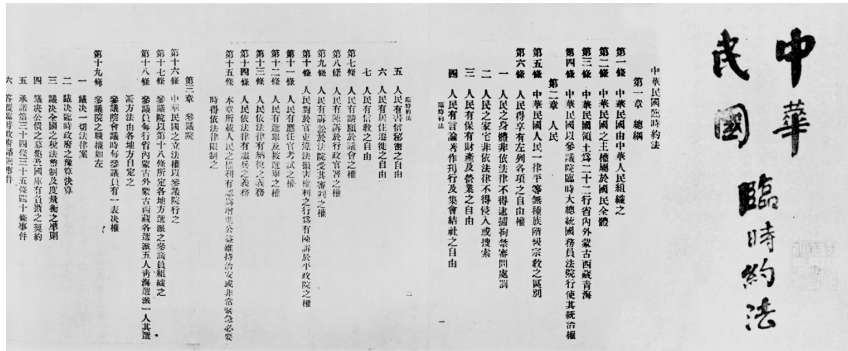 中華民國臨時約法
中華民國臨時約法
第一章 總綱
第一條 中華民國由中華人民組織之
第二條 中華民國之主權屬於國民全體
第三條 中華民國領土爲二十二行省內外蒙古西藏青海
第四條 中華民國以參議院臨時大總統國務員法院行使其統治權
第二章 人民
第五條 中華民國人民一律平等無種族階級宗教之區別
第六條 人民得享有左列各項之自由權
一 人民之身體非依法律不得逮捕拘禁審問處罰
二 人民之家宅非依法律不得侵入或搜索
三 人民有保有財產及營業之自由
四 人民有言論著作刊行及集會結社之自由
臨時約法
一
臨時約法
二
五 人民有書信秘密之自由
六 人民有居住遷徙之自由
七 人民有信教之自由
第七條 人民有請願於議會之權
第八條 人民有陳訴於行政官署之權
第九條 人民有訴訟於法院受其審判之權
第十條 人民對於官吏違法損害權利之行爲有陳訴於平政院之權
第十一條 人民有應任官考試之權
第十二條 人民有選舉及被選舉之權
第十三條 人民依法律有納稅之義務
第十四條 人民依法律有服兵之義務
第十五條 本章所載人民之權利有認爲增進公益維持治安或非常緊急必要
時得依法律限制之
第三章 參議院
第十六條 中華民國之立法權以參議院行之
第十七條 參議院以第十八條所定各地方選派之參議員組織之
第十八條 參議員每行省內蒙古外蒙古西藏各選派五人青海選派一人其選
派方法由各地方自定之
參議院會議時每參議員有一表決權
第十九條 參議院之職權如左
一 議決一切法律案
二 議決臨時政府之預算決算
三 議決全國之稅法幣制及度量衡之準則
四 議決公債之募集及國庫有負擔之契約
五 承諾第三十四條三十五條四十條事件
六 答覆臨時政府諮詢事件